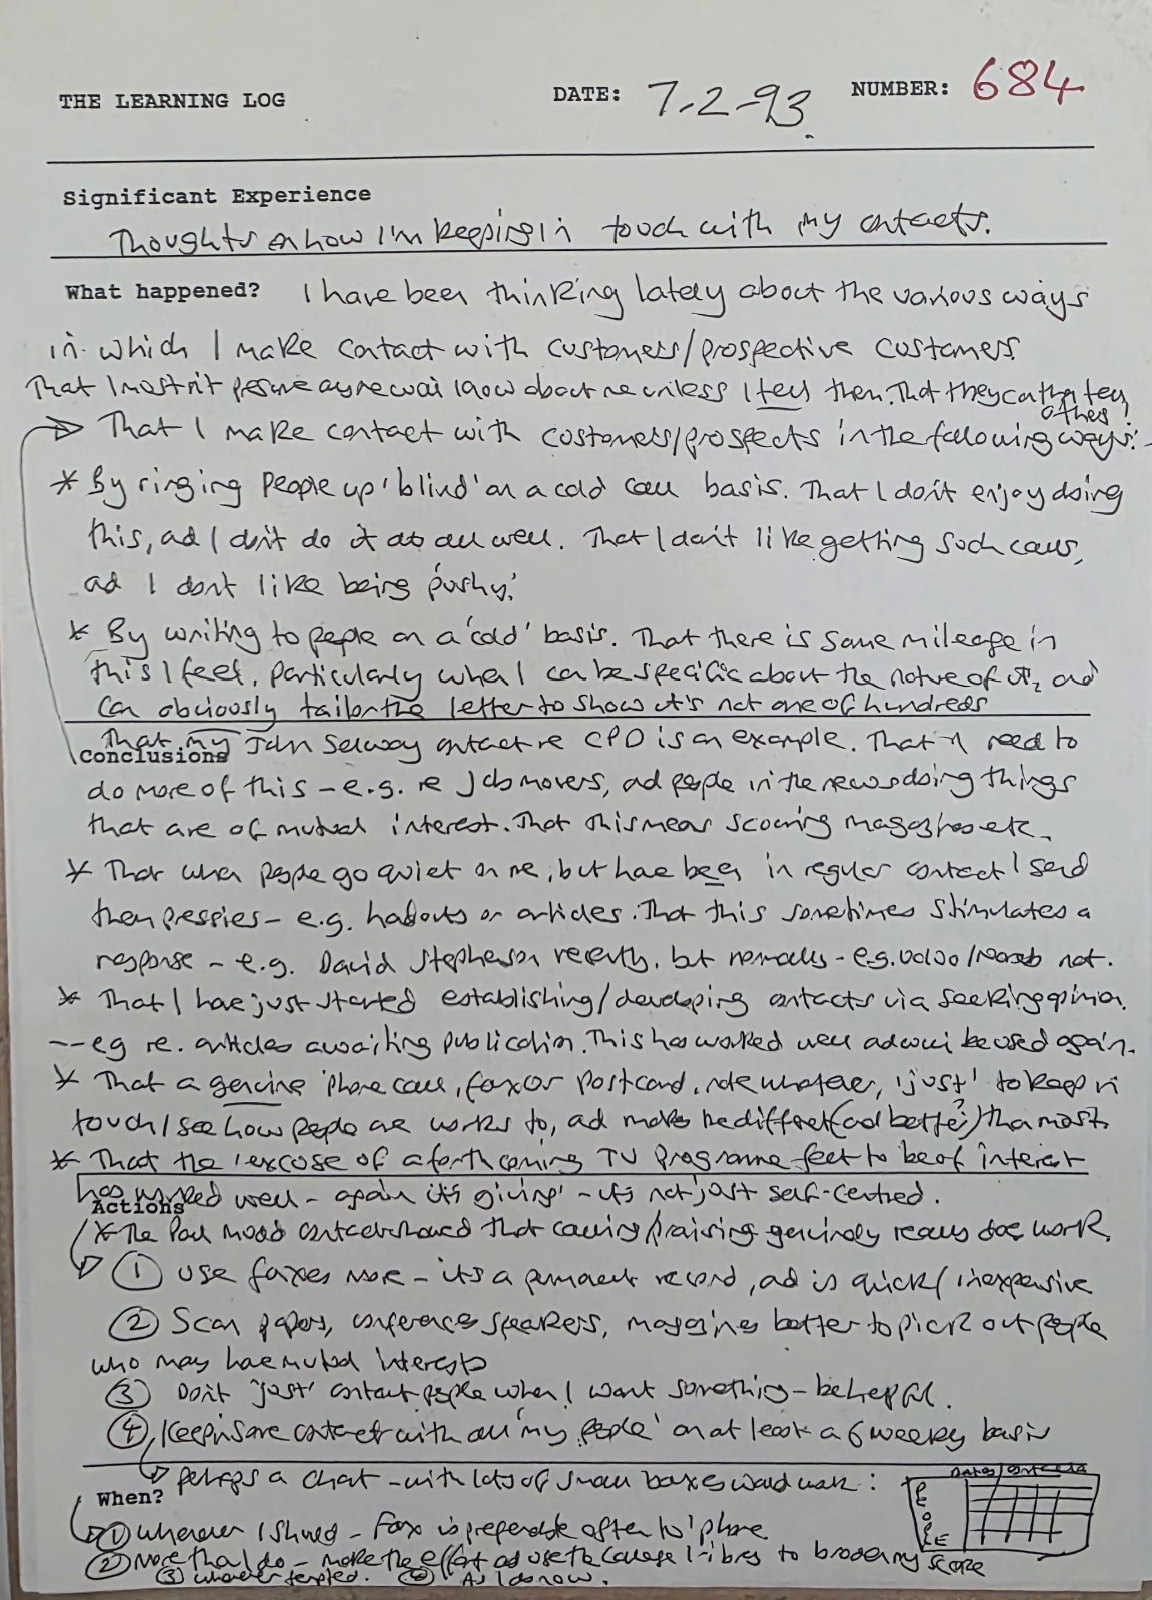 THE LEARNING LOG DATE: 7-2-93. NUMBER: 684
Significant Experience
Thoughts on how I'm keeping in touch with my contacts.
What happened? I have been thinking lately about the various ways
in which I make contact with customers/prospective customers
That I mustn't presume anyone will know about me unless I tell them. That they can then tell others!
That I make contact with customers/prospects in the following ways:-
* By ringing people up 'blind' on a cold call basis. That I don't enjoy doing
this, and I don't do it at all well. That I don't like getting such calls,
and I don't like being 'pushy'.
* By writing to people on a 'cold' basis. That there is some mileage in
this I feel, particularly when I can be specific about the nature of it, and
can obviously tailor the letter to show it's not one of hundreds
That my John Selway contact re CPD is an example. That I need to
Conclusions
do more of this - e.g. re job movers, and people in the news doing things
that are of mutual interest. That this means scouring magazines etc.
* That when people go quiet on me, but have been in regular contact I send
them pressies - e.g. handouts or articles. That this sometimes stimulates a
response - e.g. David Stephenson recently, but normally - e.g. not.
* That I have just started establishing/developing contacts via seeking opinion.
-- eg re. articles awaiting publication. This has worked well and will be used again.
* That a genuine 'phone call, fax or postcard, note whatever, 'just' to keep in
touch/see how people are works to, and makes me different (and better?) than most.
* That the 'excuse of a forthcoming TV programme felt to be of interest
has worked well - again it's 'giving' - it's not just self-centred.
Actions
* The Paul Mood contact showed that caring/praising genuinely really does work.
① Use faxes more - it's a permanent record, and is quick/inexpensive
② Scan papers, conference speakers, magazines better to pick out people
who may have mutual interests
③ Don't 'just' contact people when I want something - be helpful.
④ Keep in some contact with all 'my people' on at least a 6 weekly basis
perhaps a chart - with lots of small boxes would work:
Dates/Contacts
PEOPLE
When?
① Whenever I should - Fax is preferable often to 'phone
② More than I do - make the effort and use the College libraries to broaden my scope
③ whenever tempted. ④ As I do now.